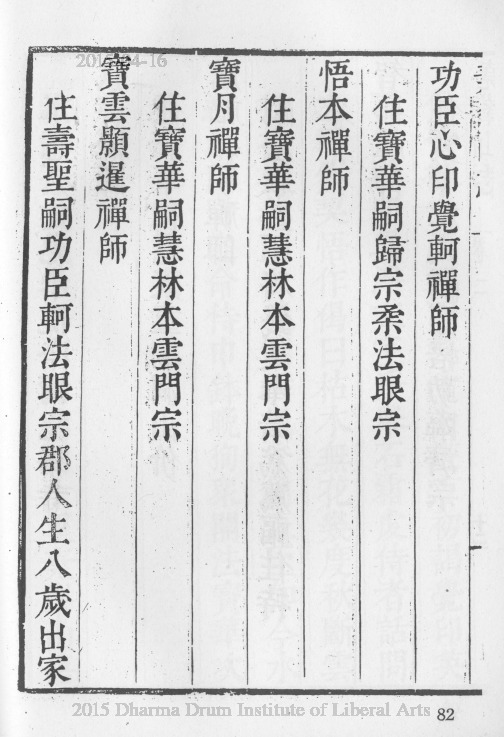 功臣心印覺軻禪師
住寶華嗣歸宗柔法眼宗
悟本禪師
住寶華嗣慧林本雲門宗
寶月禪師
住寶華嗣慧林本雲門宗
寶雲顯暹禪師
住壽聖嗣功臣軻法眼宗郡人生八歲出家
2015-04-16
2015 Dharma Drum Institute of Liberal Arts
82